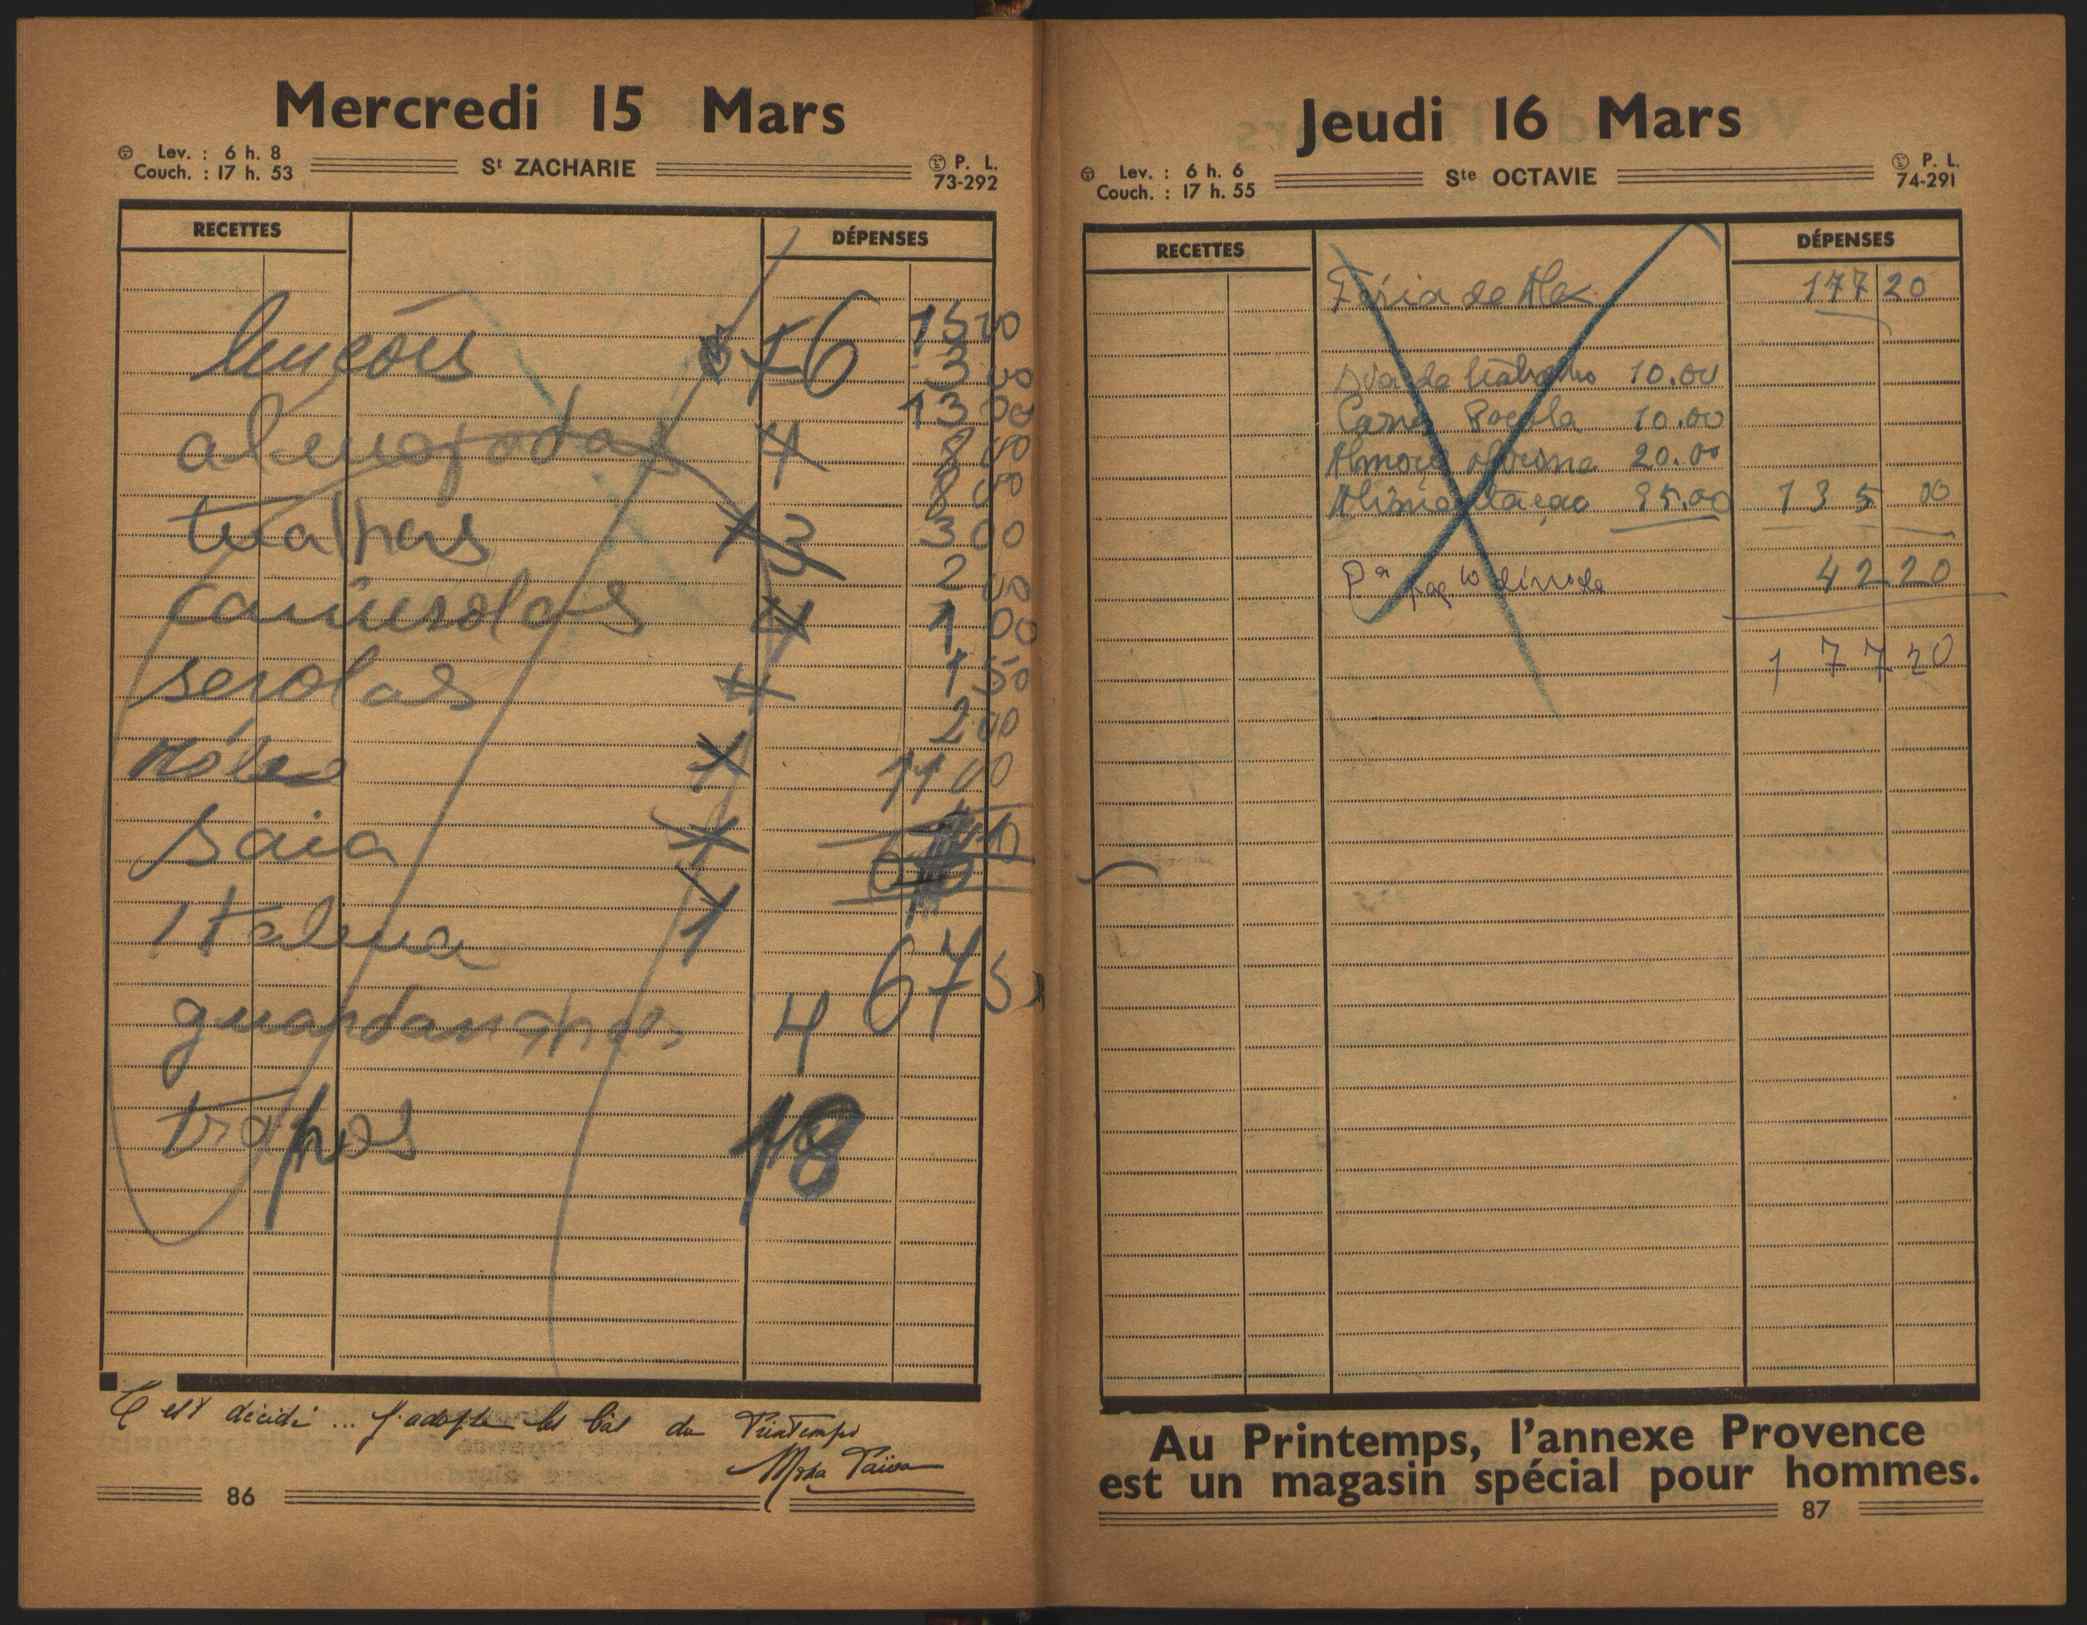 Mercredi 15 Mars
Lev. : 6 h. 8
Couch. : 17 h. 53
St ZACHARIE
P. L.
73-292
RECETTES
DÉPENSES
lençóis 6 15 00
3 00
13 00
almofadas 4 8 00
8 00
toalhas 3 3 00
camisolas 4 2 00
1 00
serolas 4 1 50
2 00
11 00
saia 1
1
675
guardanapos 4
trapos 18
C'est décidé ... j'adopte les bas du Printemps
86
Jeudi 16 Mars
Lev. : 6 h. 6
Couch. : 17 h. 55
Ste OCTAVIE
P. L.
74-291
RECETTES
DÉPENSES
Féria de 177 20
dia de trabalho 10.00
10.00
Almoço 20.00
Alimentação 95.00 135 00
Pa pagto 42 20
177 20
Au Printemps, l'annexe Provence
est un magasin spécial pour hommes.
87